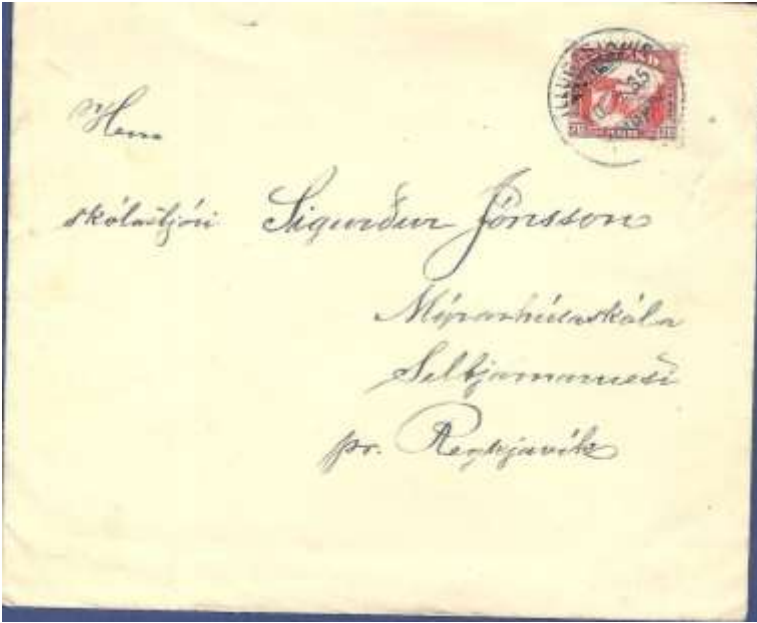 ÍSLAND
35
20 20
Herra
skólastjóri Sigurður Jónsson
Mýrarhúsaskóla
Seltjarnarnesi
pr. Reykjavík